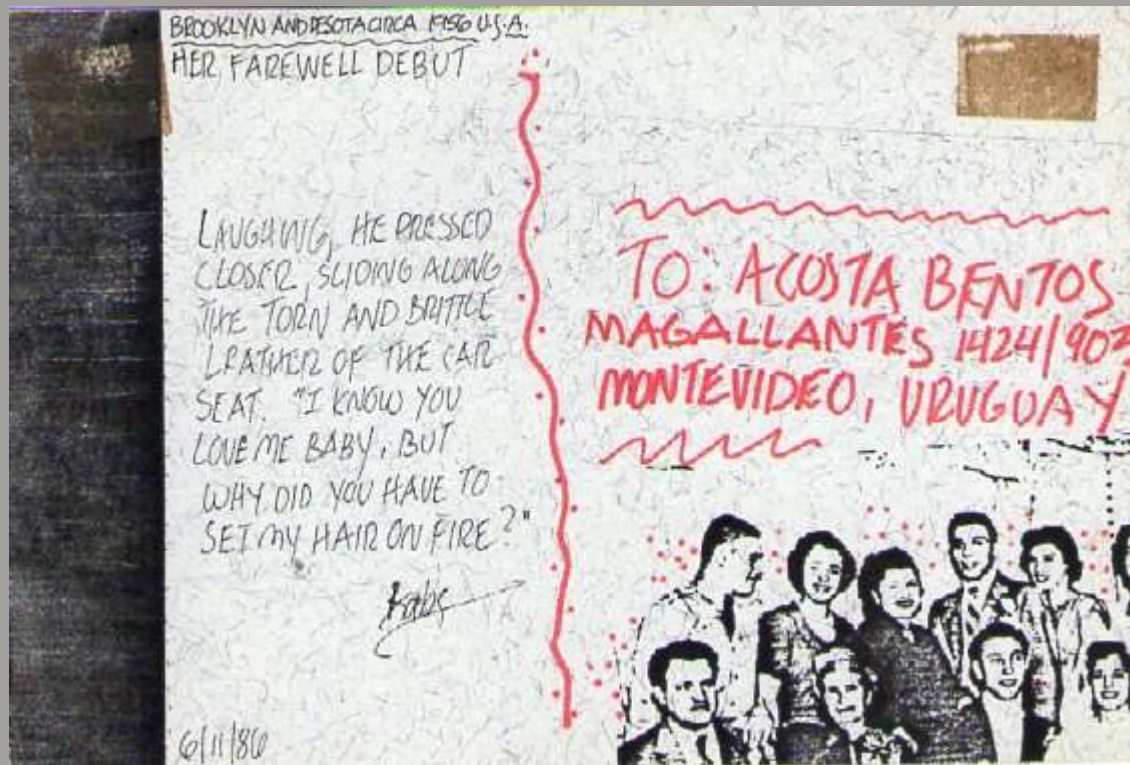 BROOKLYN AND DESOTA CIRCA 1956 U.S.A.
HER FAREWELL DEBUT
LAUGHING, HE PRESSED
CLOSER, SLIDING ALONG
THE TORN AND BRITTLE
LEATHER OF THE CAR
SEAT. "I KNOW YOU
LOVE ME BABY, BUT
WHY DID YOU HAVE TO
SET MY HAIR ON FIRE?"
6/11/86
TO: ACOSTA BENTOS
MAGALLANTES 1424/902
MONTEVIDEO, URUGUAY